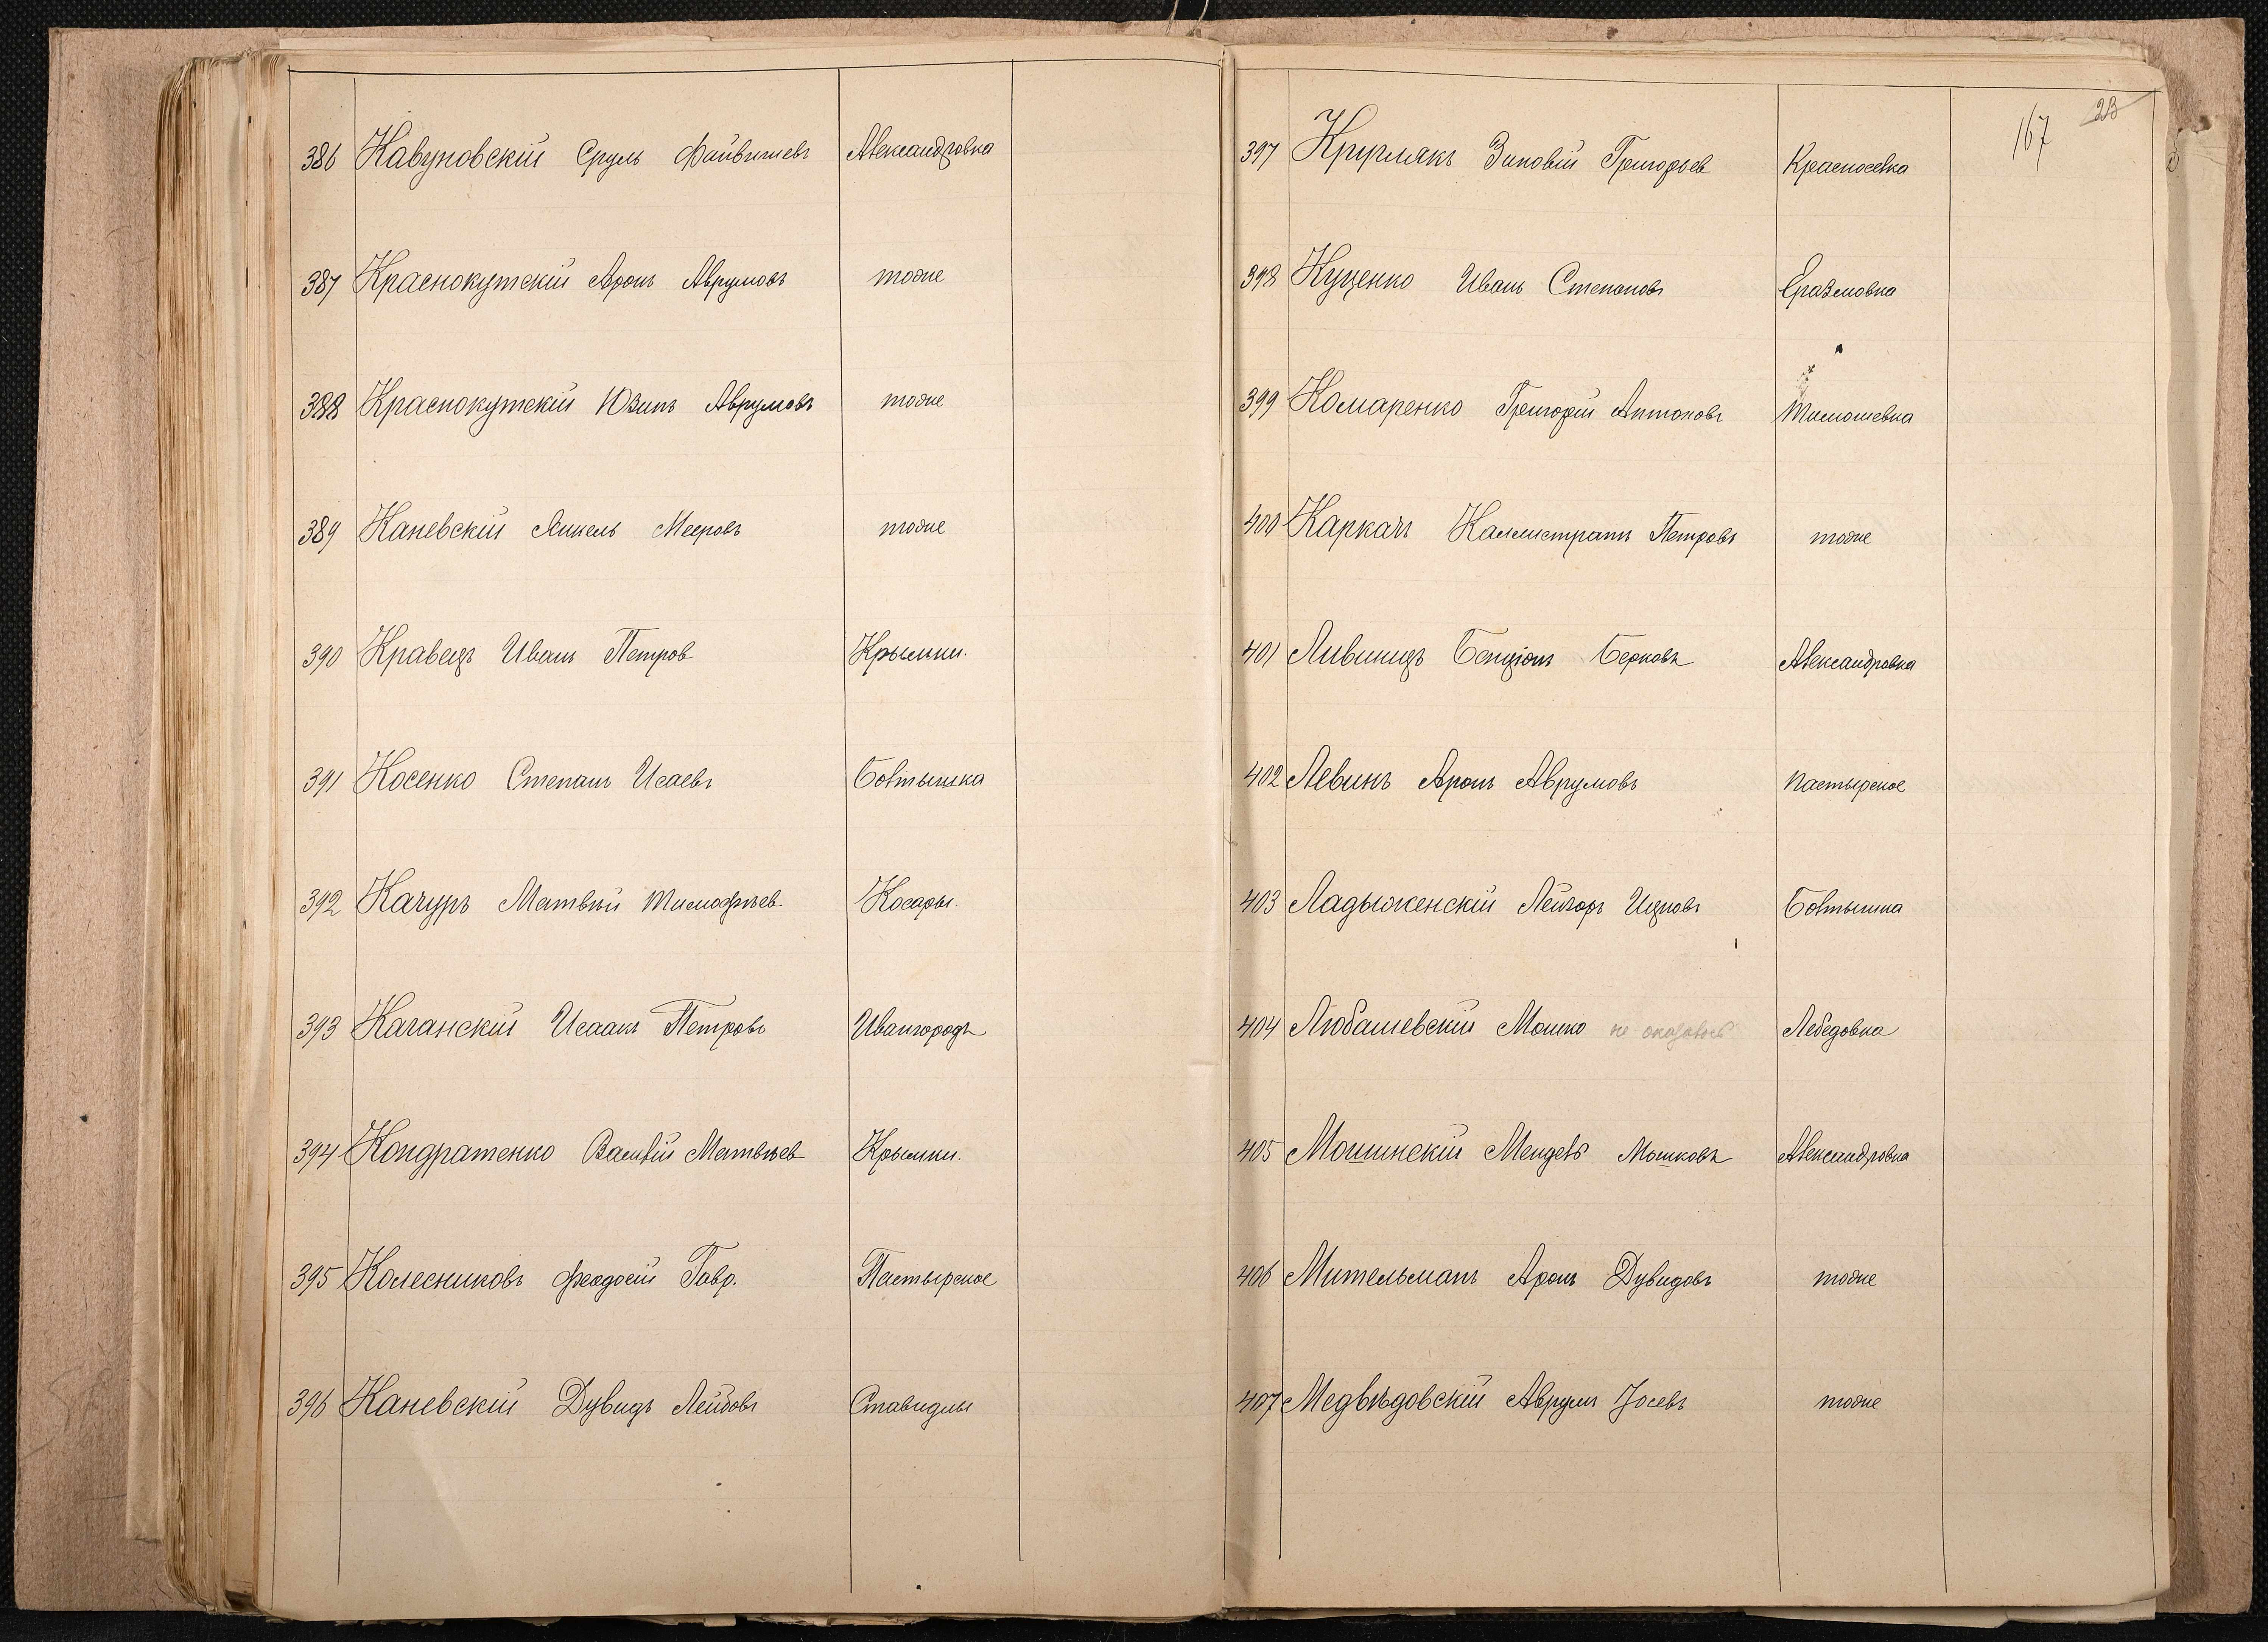 386 Кавуновскій Сруль Файвишевъ Александровка
387 Краснокутскій Аронъ Аврумовъ тоже
388 Краснокутскій Юзипъ Аврумовъ тоже
389 Каневскій Янкель Мееровъ тоже
390 Кравецъ Иванъ Петров Крымки.
391 Косенко Степанъ Исаевъ Бовтышка
392 Качуръ Матвѣй Тимофѣев Косары.
393 Качанскій Исаакъ Петровъ Ивангородъ
394 Кондратенко Василій Матвѣев Крымки.
395 Колесниковъ Феодосій Гавр. Пастырское
396 Каневскій Дувидъ Лейбовъ Ставидлы
167 23
397 Круглякъ Зиновій Григорьев Красноселка
398 Куценко Иванъ Степановъ Еразмовка
399 Комаренко Григорій Антоновъ Тимошевка
400 Каркачъ Каллистратъ Петровъ тоже
401 Лившицъ Бенціонъ Берковъ Александровка
402 Левинъ Аронъ Аврумовъ Пастырское
403 Ладыженскій Лейзоръ Ицковъ Бовтышка
404 Любашевскій Мошко не Лебедовка
405 Мошинскій Мендель Мошковъ Александровка
406 Мительманъ Аронъ Дувидовъ тоже
407 Медвѣдовскій Аврумъ Іосевъ тоже